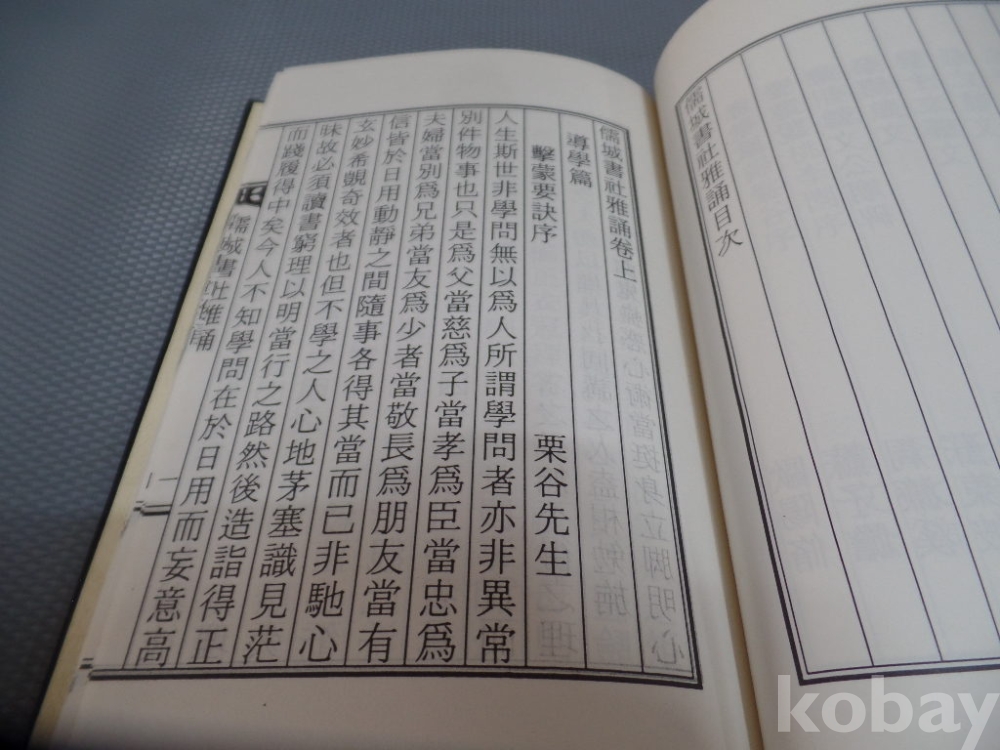 儒城書社雅誦目次
儒城書社雅誦卷上
導學篇
擊蒙要訣序 栗谷先生
人生斯世非學問無以爲人所謂學問者亦非異常
別件物事也只是爲父當慈爲子當孝爲臣當忠爲
夫婦當別爲兄弟當友爲少者當敬長爲朋友當有
信皆於日用動靜之間隨事各得其當而已非馳心
玄妙希覬奇效者也但不學之人心地茅塞識見茫
昧故必須讀書窮理以明當行之路然後造詣得正
而踐履得中矣今人不知學問在於日用而妄意高
儒城書社雅誦 一
kobay